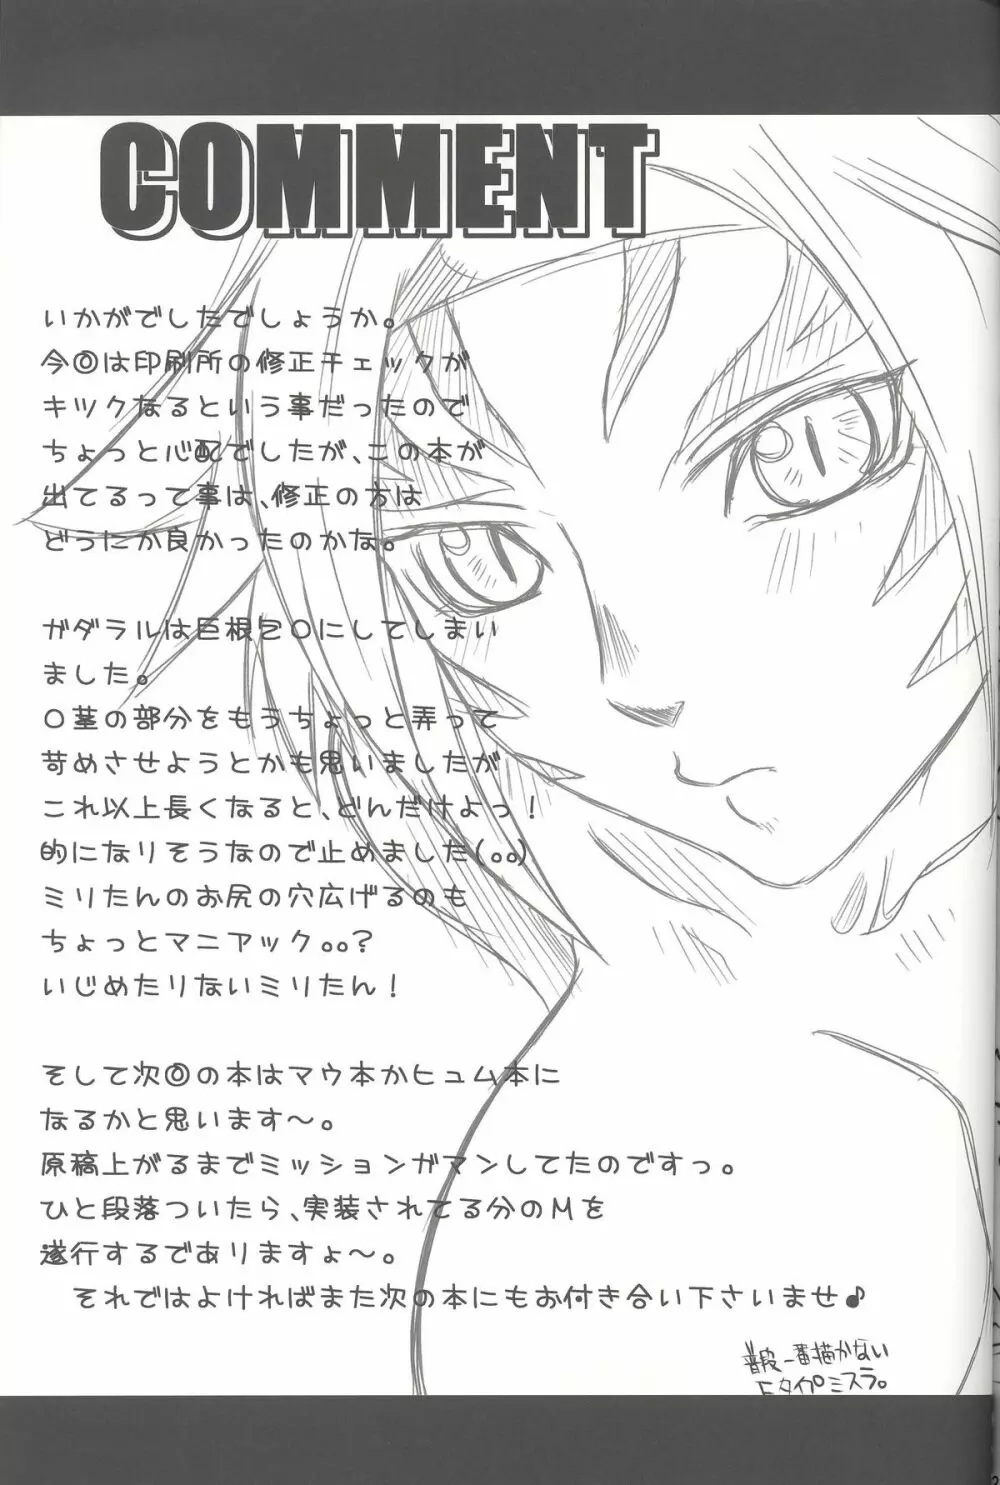 COMMENT
いかがでしたでしょうか。
今回は印刷所の修正チェックが
キツくなるという事だったので
ちょっと心配でしたが、この本が
出てるって事は、修正の方は
どうにか良かったのかな。
ガダラルは巨根包〇にしてしまい
ました。
〇茎の部分をもうちょっと弄って
苛めさせようとかも思いましたが
これ以上長くなると、どんだけよっ！
的になりそうなので止めました(。。)
ミリたんのお尻の穴広げるのも
ちょっとマニアック。。？
いじめたりないミリたん！
そして次回の本はマウ本かヒュム本に
なるかと思います～。
原稿上がるまでミッションガマンしてたのですっ。
ひと段落ついたら、実装されてる分のMを
遂行するでありますよ～。
それではよければまた次の本にもお付き合い下さいませ♪
普段一番描かない
Fタイプミスラ。